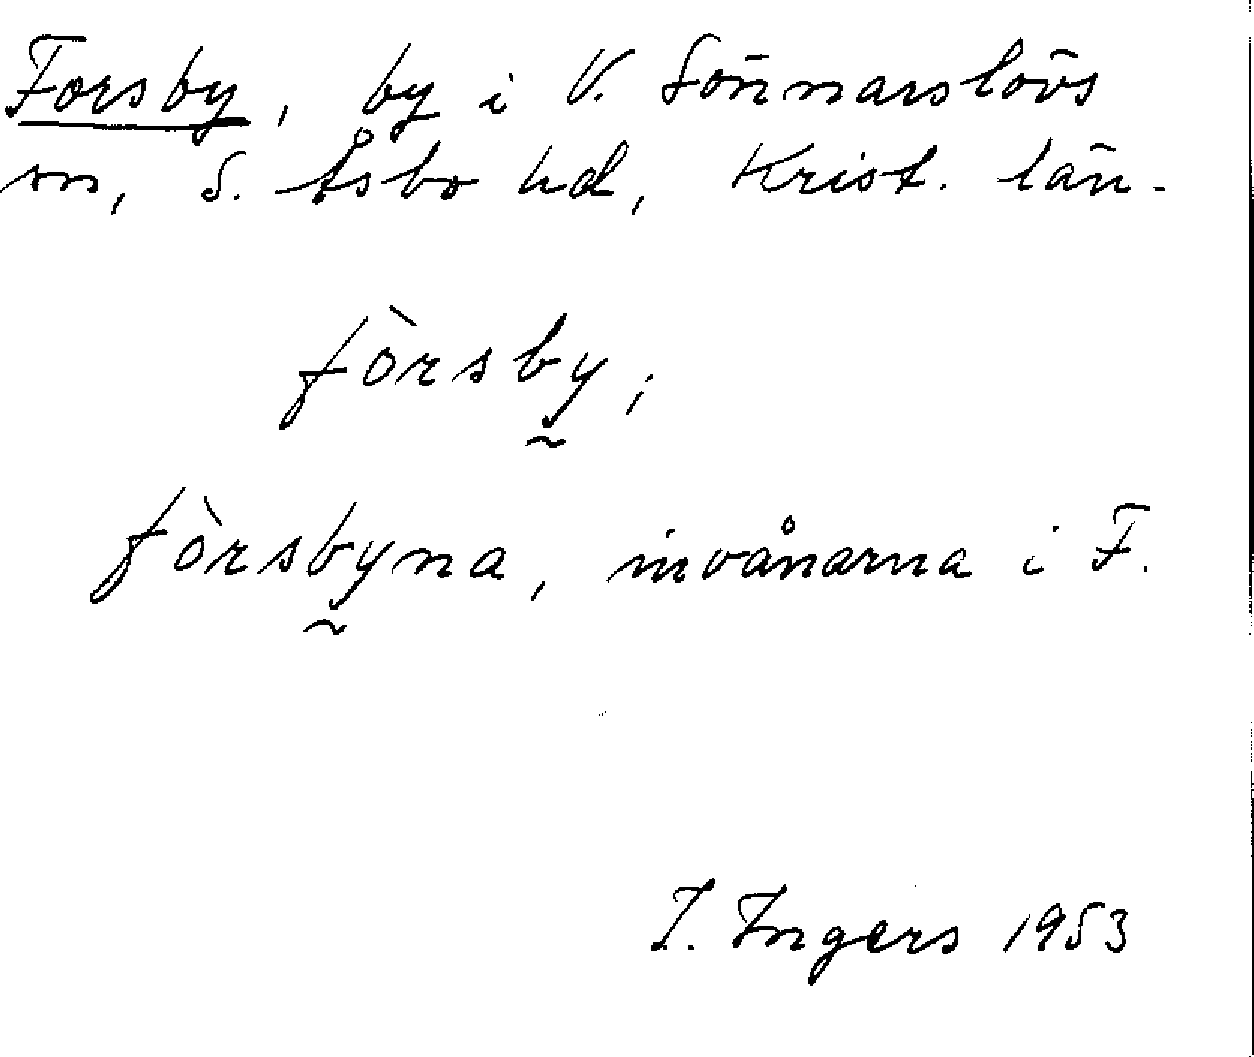 Forsby, by i V. Sönnarslövs
sn, S. Åsbo hd, Krist. län.
fòrsby̰,
fòrsby̰na, invånarna i F.
I. Ingers 1953